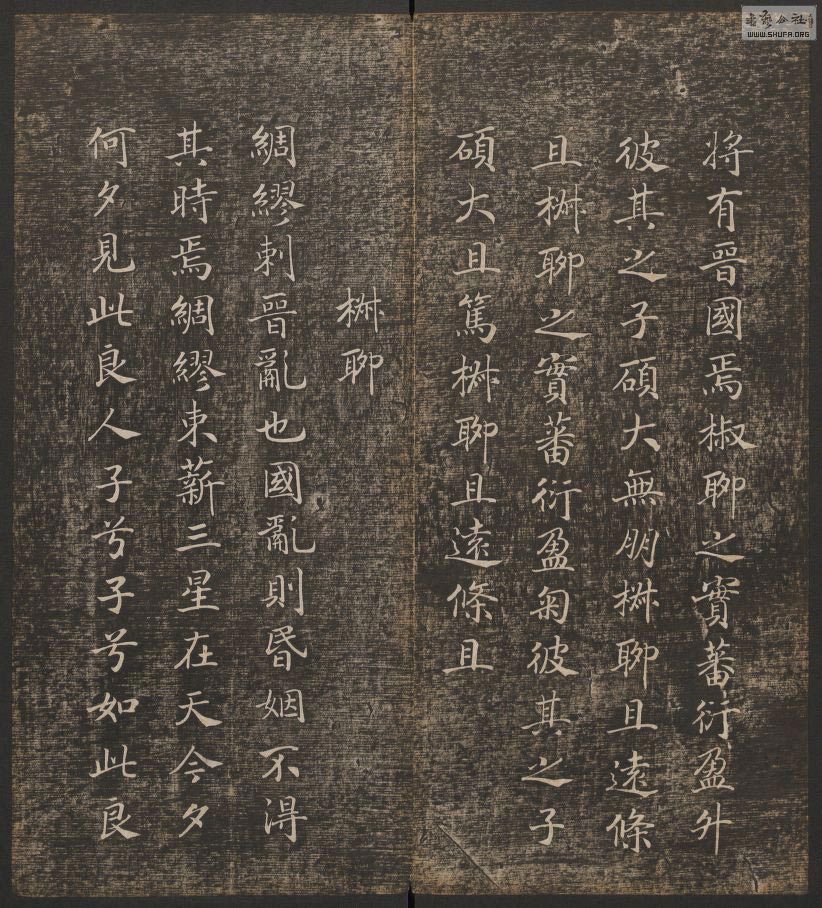 將有晉國焉椒聊之實蕃衍盈升
彼其之子碩大無朋椒聊且遠條
且椒聊之實蕃衍盈匊彼其之子
碩大且篤椒聊且遠條且
椒聊
綢繆刺晉亂也國亂則昬姻不淂
其時焉綢繆束薪三星在天今夕
何夕見此良人子兮子兮如此良
书艺公社
WWW.SHUFA.ORG